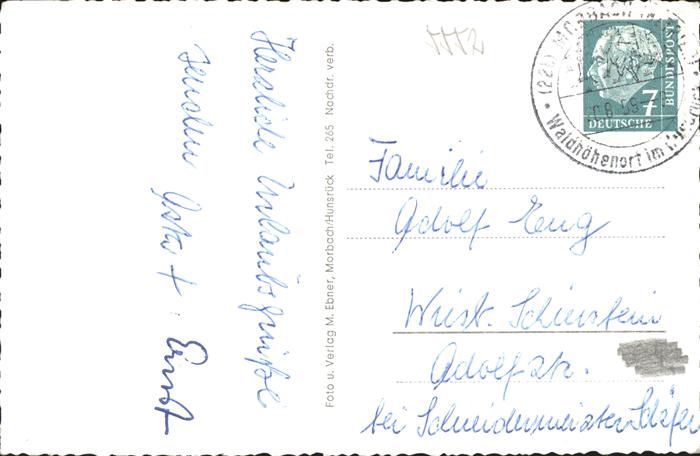 Herzliche Urlaubsgrüße
senden
Ernst
Foto u. Verlag M. Ebner, Morbach/Hunsrück Tel. 265 Nachdr. verb.
DEUTSCHE BUNDESPOST
7
(22b) MORBACH
Waldhöhenort im
Familie
Adolf Eng
Schierstein
Adolfstr.
bei Schneidermeister Schäfer